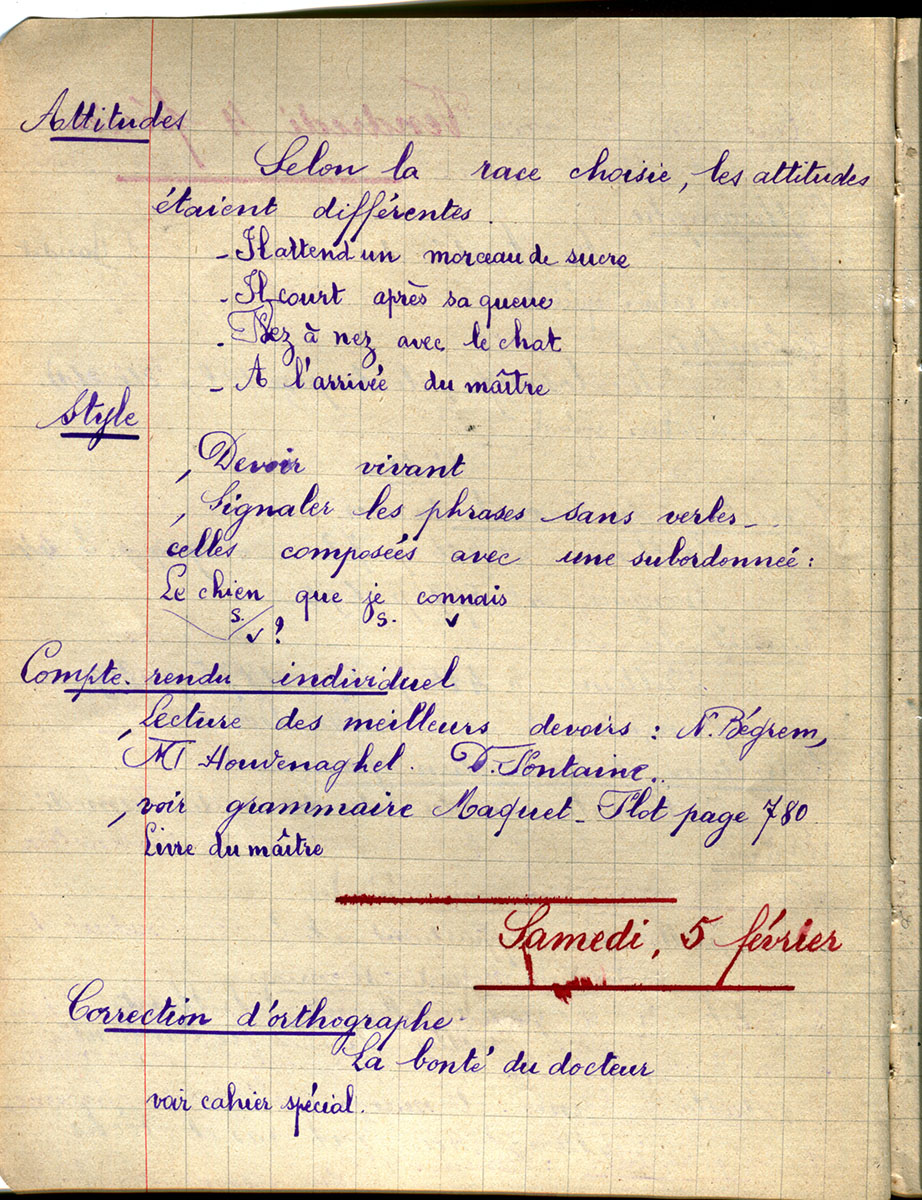 Attitudes
Selon la race choisie, les attitudes
étaient différentes
- Il attend un morceau de sucre
- Il court après sa queue
- Nez à nez avec le chat
- A l'arrivée du maître
Style
, Devoir vivant
, Signaler les phrases sans verbes -
celles composées avec une subordonneé :
Le chien que je connais
s. s. v
v ?
Compte-rendu individuel
, Lecture des meilleurs devoirs : N. Bégrem,
MT Houvenaghel. D. Fontaine.
, voir grammaire Maquet - Flot page 780
Livre du maître
Samedi, 5 février
Correction d'orthographe
La bonté du docteur
voir cahier spécial.